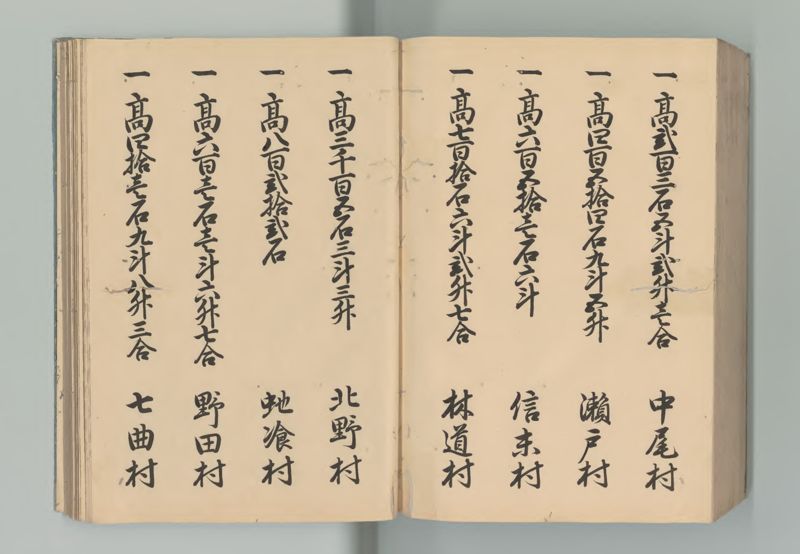 一 高弐百三石五斗弐升壱合 中尾村
一 高四百五拾四石九斗五升 瀬戸村
一 高六百五拾壱石六斗 信末村
一 高七百拾石六斗弐升七合 林道村
一 高三千百五石三斗三升 北野村
一 高八百弐拾弐石 虵喰村
一 高六百壱石壱斗六升七合 野田村
一 高四拾壱石九斗八升三合 七曲村